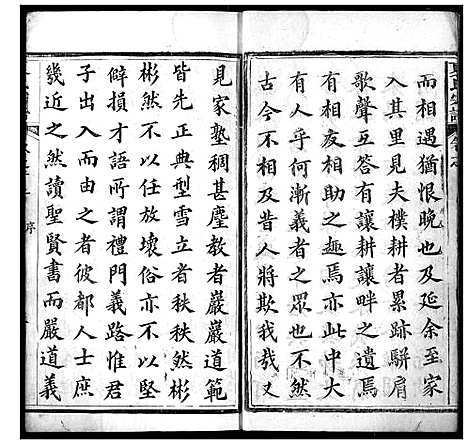 而相遇猶恨晚也及延余至家
入其里見夫樸耕者累跡駢肩
歌聲互答有讓耕讓畔之遺焉
亦友相助之趣焉亦此中大
有人乎何漸義者之眾也不然
古今不相及昔人將欺我哉又
見家塾稠甚塵教者嚴嚴道範
皆先正典型雪立者秩秩然彬
彬然不以任放壞俗亦不以堅
僻損才語所謂禮門義路惟君
子出入而由之者彼都人士庶
幾近之然讀聖賢書而嚴道義
序